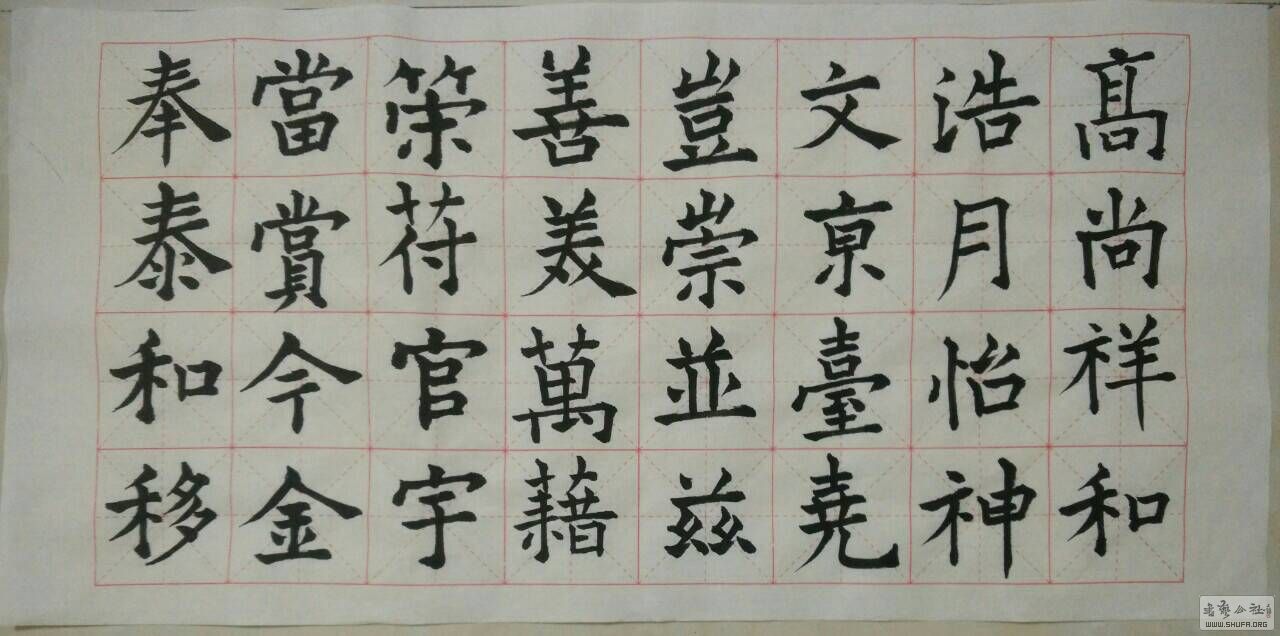 高尚祥和
浩月怡神
文京臺堯
豈崇並茲
善美萬藉
策苻官宇
當賞今金
奉泰和移
書藝公社
WWW.SHUFA.ORG